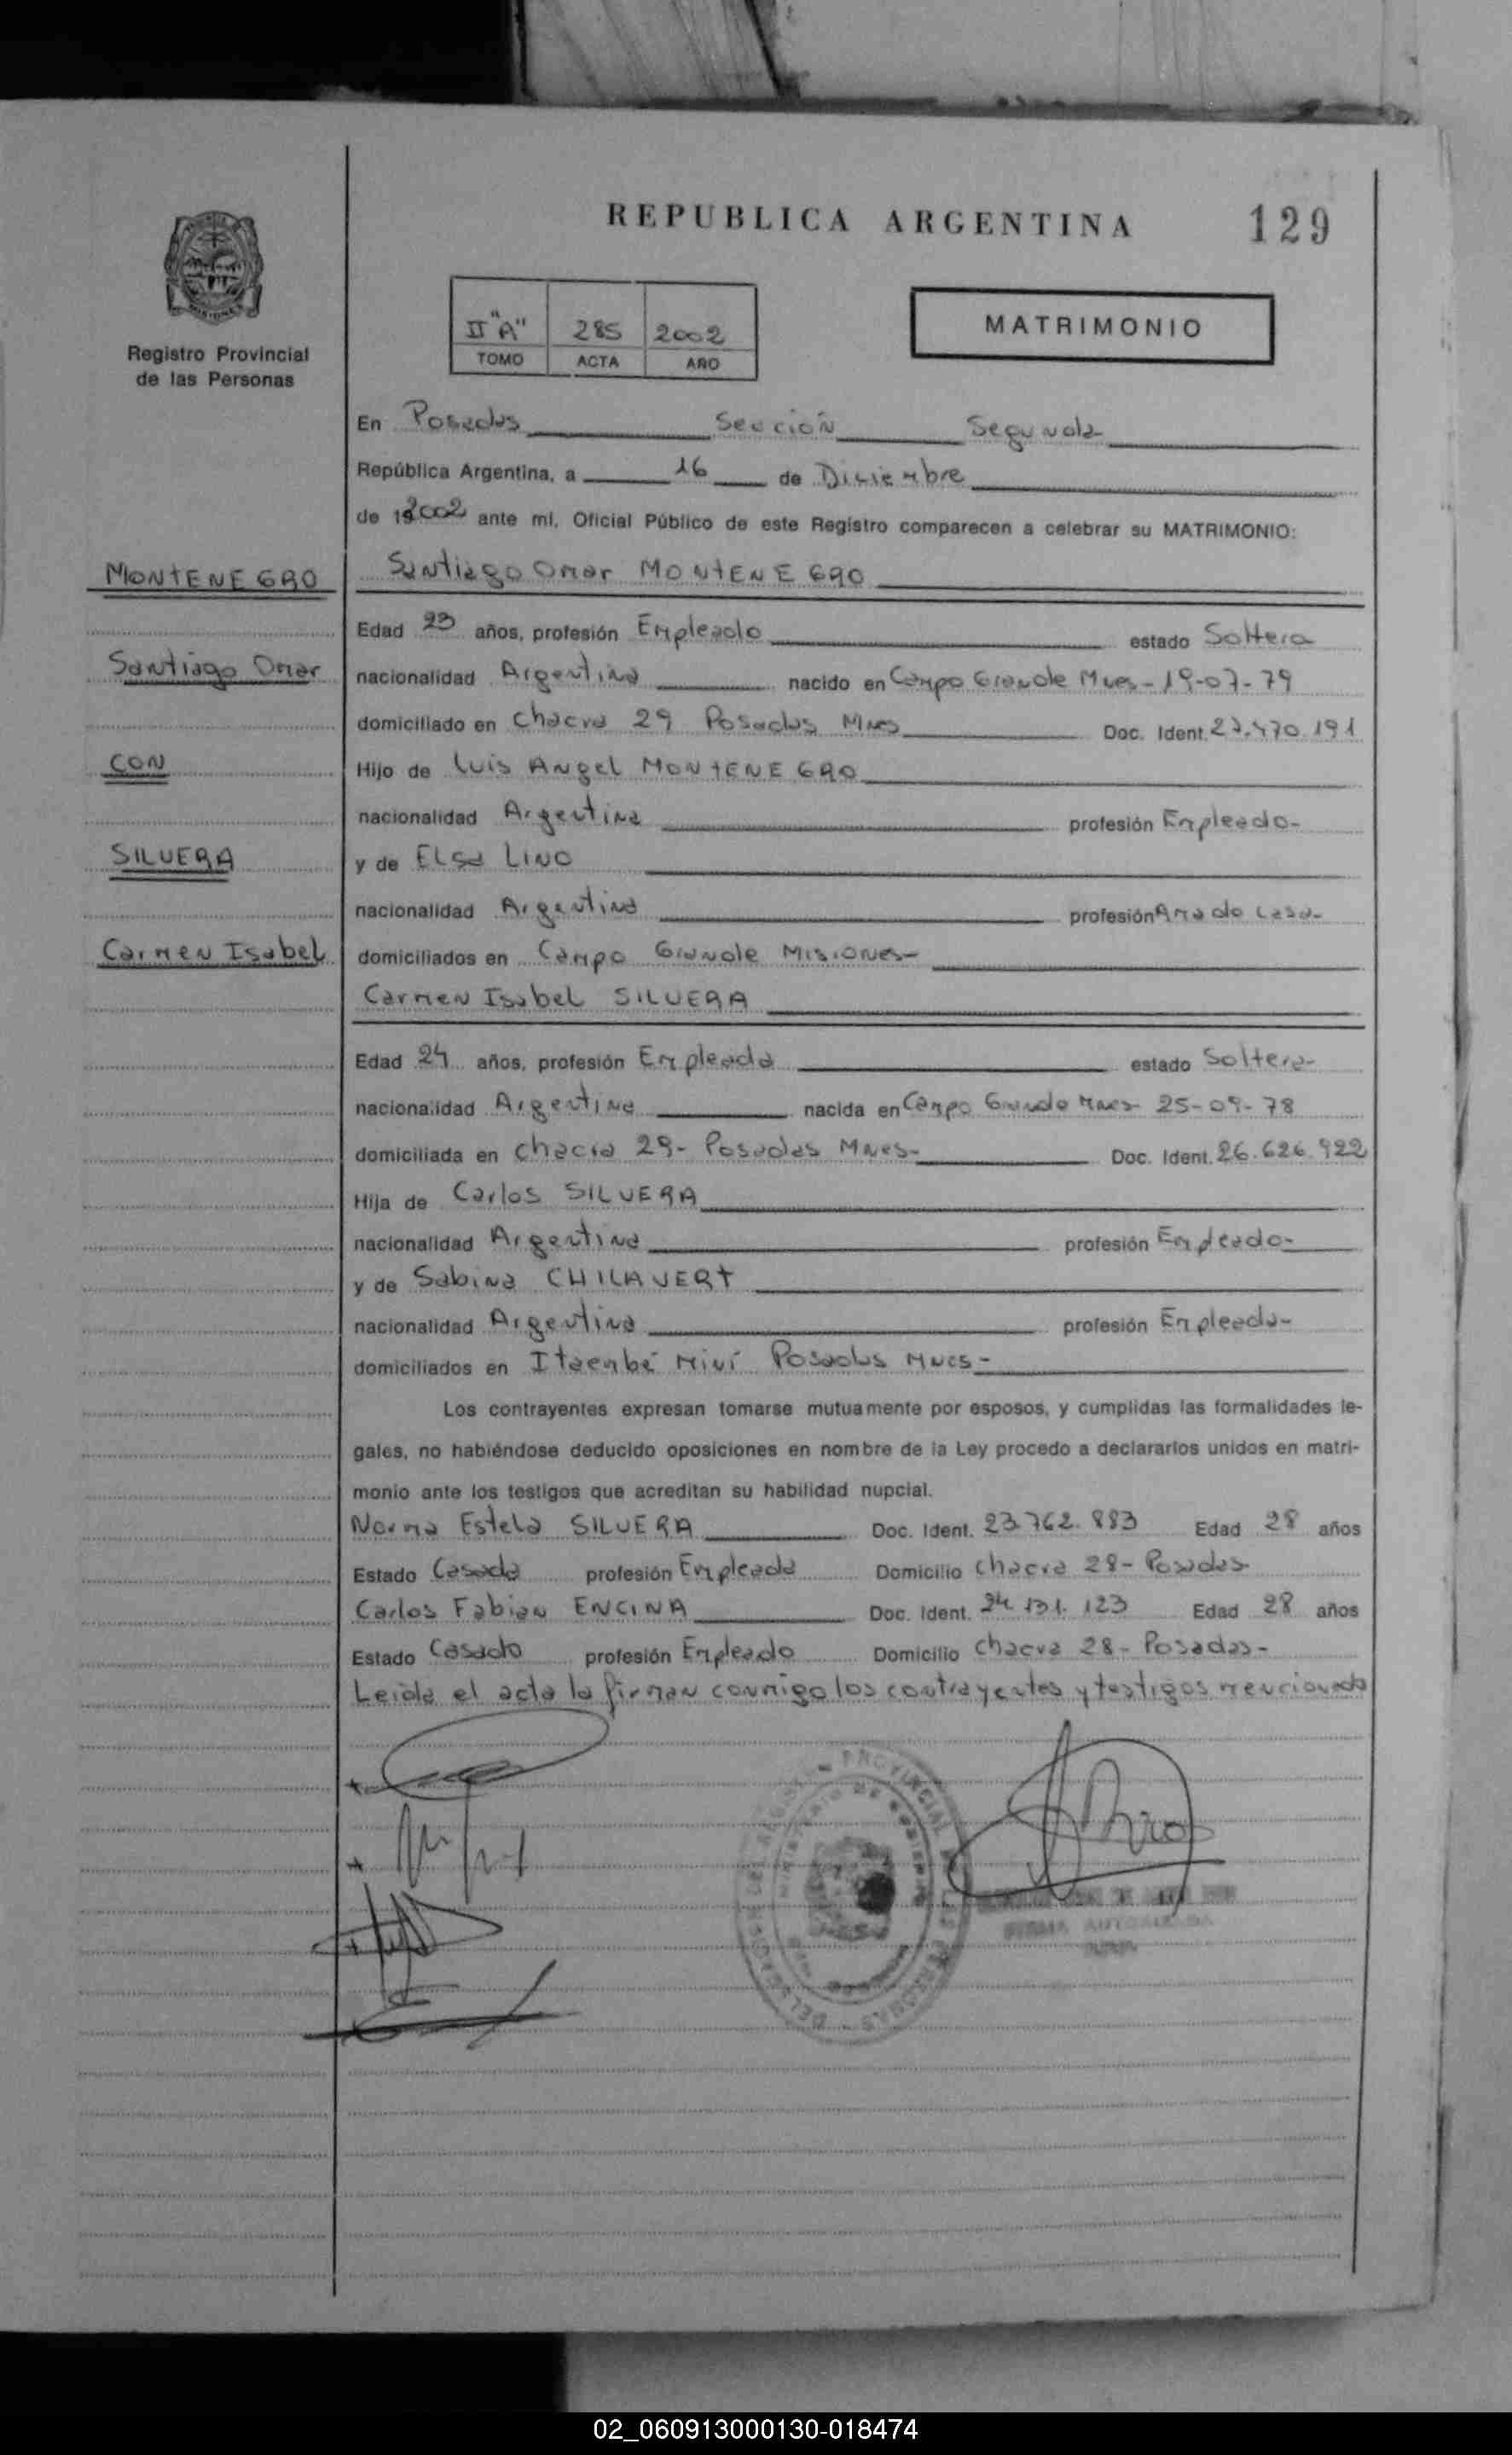 REPUBLICA ARGENTINA
129
II "A" 285 2002
TOMO ACTA AÑO
MATRIMONIO
Registro Provincial
de las Personas
En Posadas Sección Segunda
República Argentina, a 16 de Diciembre
de 2002 ante mí, Oficial Público de este Registro comparecen a celebrar su MATRIMONIO:
MONTENEGRO
Santiago Omar MONTENEGRO
Edad 23 años, profesión Empleado estado Soltero
Santiago Omar
nacionalidad Argentina nacido en Campo Grande Mnes - 19-07-79
domiciliado en Chacra 29 Posadas Mnes Doc. Ident. 27.470.191
CON
Hijo de Luis Angel MONTENEGRO
nacionalidad Argentina profesión Empleado-
SILVERA
y de Elsa LINO
nacionalidad Argentina profesión Ama de casa-
Carmen Isabel
domiciliados en Campo Grande Misiones-
Carmen Isabel SILVERA
Edad 24 años, profesión Empleada estado Soltera-
nacionalidad Argentina nacida en Campo Grande Mnes- 25-09-78
domiciliada en Chacra 29- Posadas Mnes- Doc. Ident. 26.626.922
Hija de Carlos SILVERA
nacionalidad Argentina profesión Empleado-
y de Sabina CHILAVERT
nacionalidad Argentina profesión Empleada-
domiciliados en Itaembé Miní Posadas Mnes-
Los contrayentes expresan tomarse mutuamente por esposos, y cumplidas las formalidades le-
gales, no habiéndose deducido oposiciones en nombre de la Ley procedo a declararlos unidos en matri-
monio ante los testigos que acreditan su habilidad nupcial.
Norma Estela SILVERA Doc. Ident. 23.762.883 Edad 28 años
Estado Casada profesión Empleada Domicilio Chacra 28- Posadas
Carlos Fabian ENCINA Doc. Ident. 24.131.123 Edad 28 años
Estado Casado profesión Empleado Domicilio Chacra 28- Posadas-
Leida el acta la firman conmigo los contrayentes y testigos mencionados
FIRMA AUTORIZADA
02_060913000130-018474